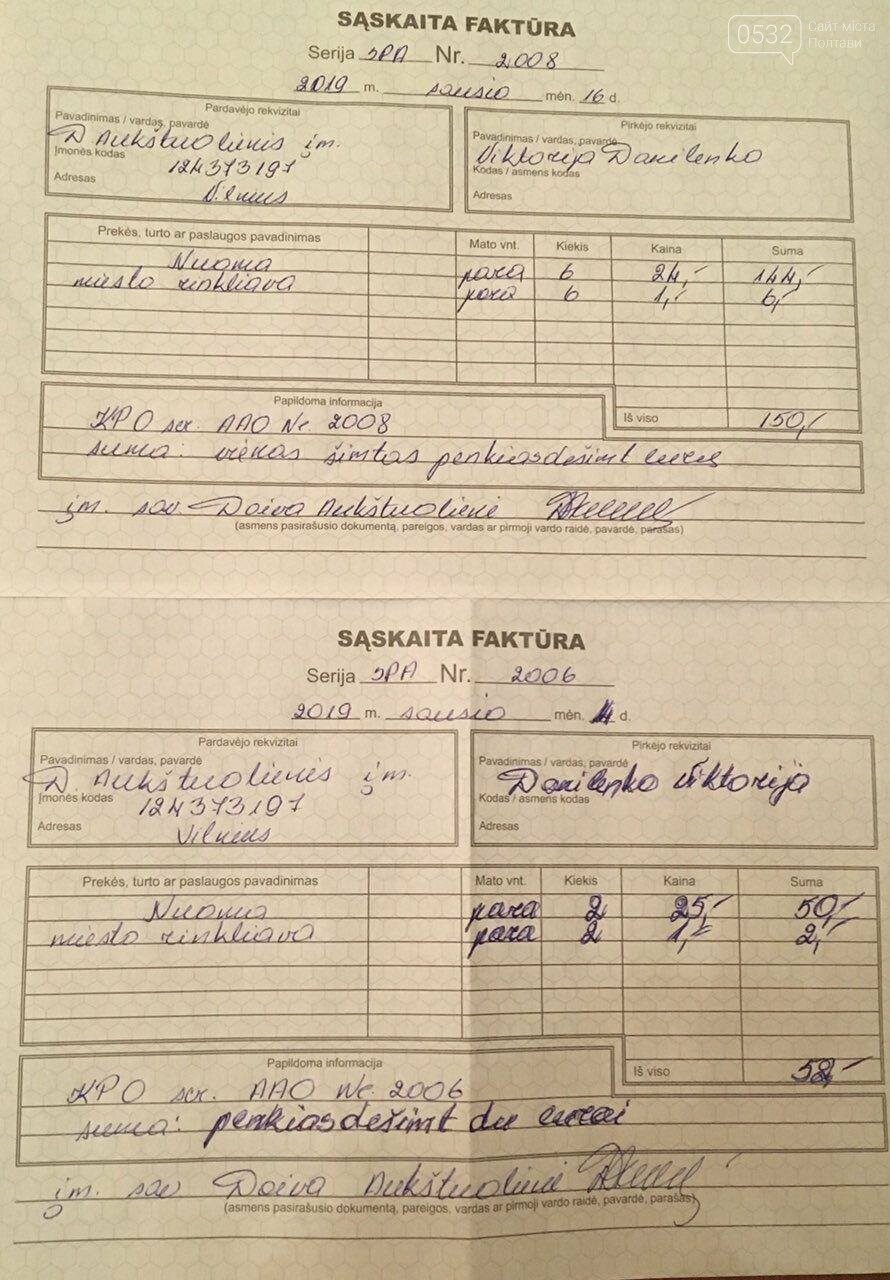 0532
Сайт міста
Полтави
SĄSKAITA FAKTŪRA
Serija SPA Nr. 2008
2019 m. sausio mėn. 16 d.
Pardavėjo rekvizitai
Pavadinimas / vardas, pavardė
D. Aukštuolienės įm.
Įmonės kodas 124373197
Adresas Vilnius
Pirkėjo rekvizitai
Pavadinimas / vardas, pavardė
Viktorija Danilenko
Kodas / asmens kodas
Adresas
Prekės, turto ar paslaugos pavadinimas Mato vnt. Kiekis Kaina Suma
Nuoma para 6 24,- 144,-
miesto rinkliava para 6 1,- 6,-
Papildoma informacija
Iš viso 150,-
KPO ser. AAO Nr. 2008
suma: vienas šimtas penkiasdešimt eurų
įm. sav Daiva Aukštuolienė
(asmens pasirašusio dokumentą, pareigos, vardas ar pirmoji vardo raidė, pavardė, parašas)
SĄSKAITA FAKTŪRA
Serija SPA Nr. 2006
2019 m. sausio mėn. 14 d.
Pardavėjo rekvizitai
Pavadinimas / vardas, pavardė
D. Aukštuolienės įm.
Įmonės kodas 124373197
Adresas Vilnius
Pirkėjo rekvizitai
Pavadinimas / vardas, pavardė
Danilenko Viktorija
Kodas / asmens kodas
Adresas
Prekės, turto ar paslaugos pavadinimas Mato vnt. Kiekis Kaina Suma
Nuoma para 2 25,- 50,-
miesto rinkliava para 2 1,- 2,-
Papildoma informacija
Iš viso 52,-
KPO ser. AAO Nr. 2006
suma: penkiasdešimt du eurai
įm. sav Daiva Aukštuolienė
(asmens pasirašusio dokumentą, pareigos, vardas ar pirmoji vardo raidė, pavardė, parašas)